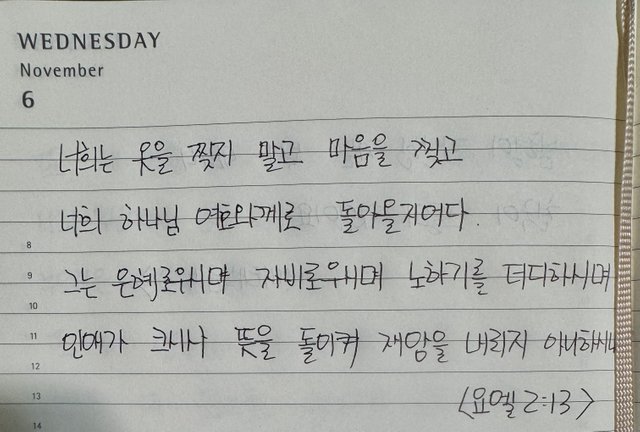 WEDNESDAY
November
6
너희는 옷을 찢지 말고 마음을 찢고
너희 하나님 여호와께로 돌아올지어다.
8
9 그는 은혜로우시며 자비로우시며 노하기를 더디하시며
10
11 인애가 크시사 뜻을 돌이켜 재앙을 내리지 아니하시나
12
13 <요엘 2:13>
14